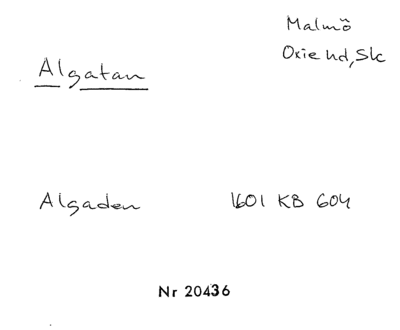 Malmö
Oxie hd, Sk
Algatan
Algaden 1601 KB 604
Nr 20436